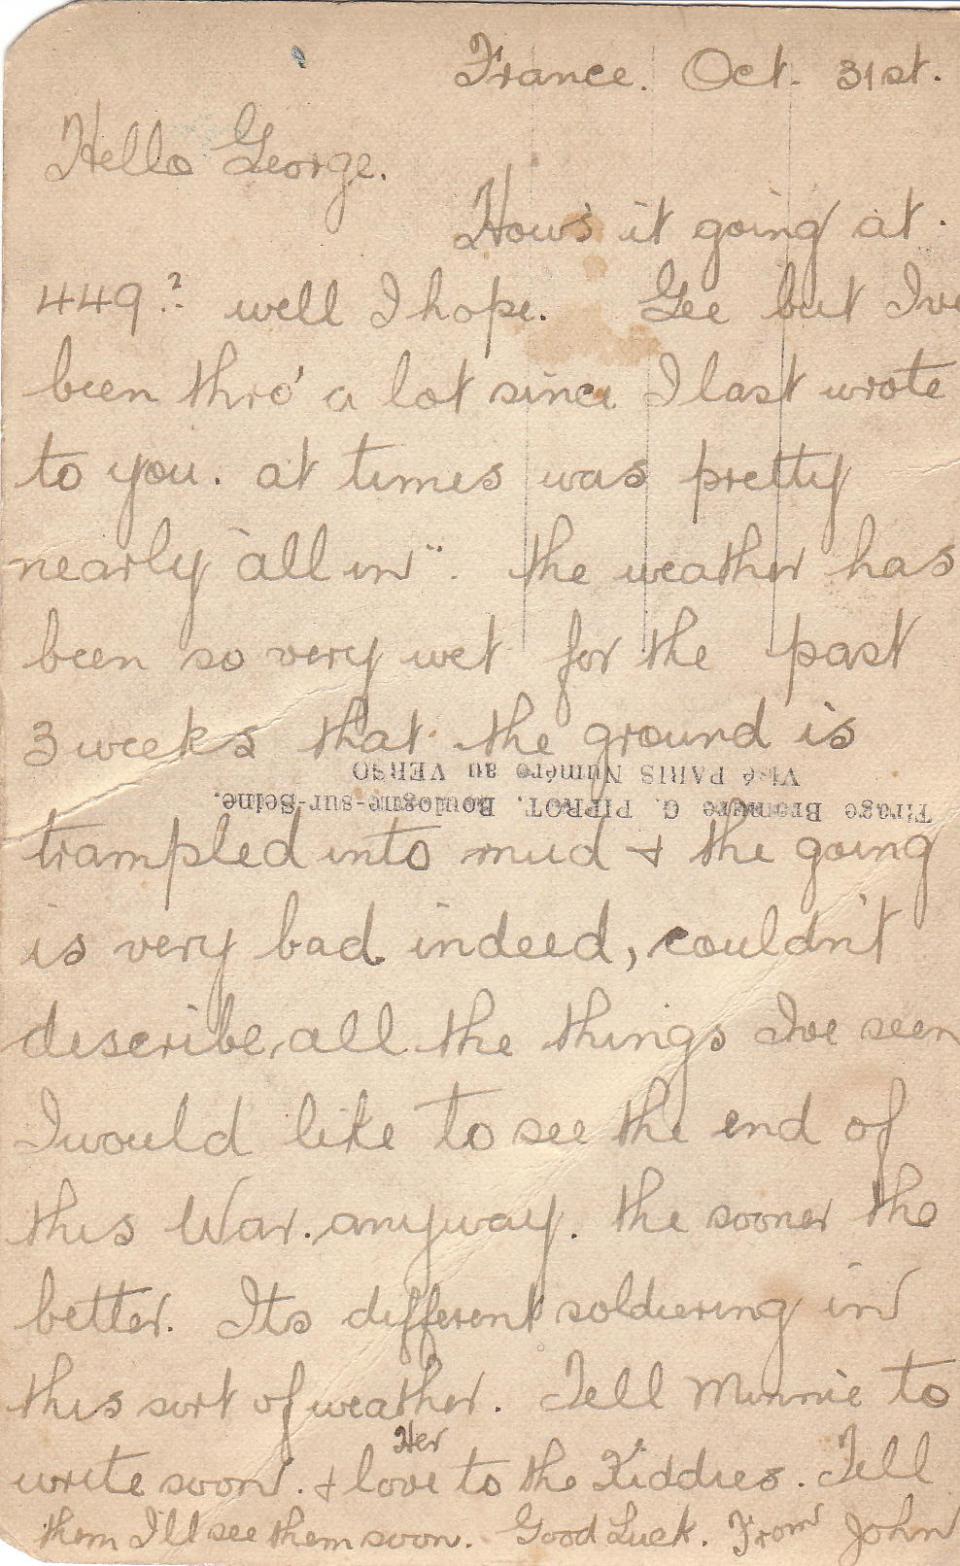 France. Oct. 31st.
Hello George.
How's it going at
449? well I hope. Gee but I've
been thro' a lot since I last wrote
to you. at times was pretty
nearly "all in". the weather has
been so very wet for the past
3 weeks that the ground is
Visé PARIS Numéro au VERSO
Tirage Bromure G. PIPROT. Boulogne-sur-Seine.
trampled into mud & the going
is very bad indeed, couldn't
describe all the things I've seen
I would like to see the end of
this War. anyway. the sooner the
better. Its different soldiering in
this sort of weather. Tell Minnie to
Her
write soon. & love to the Kiddies. Tell
them I'll see them soon. Good Luck. From John